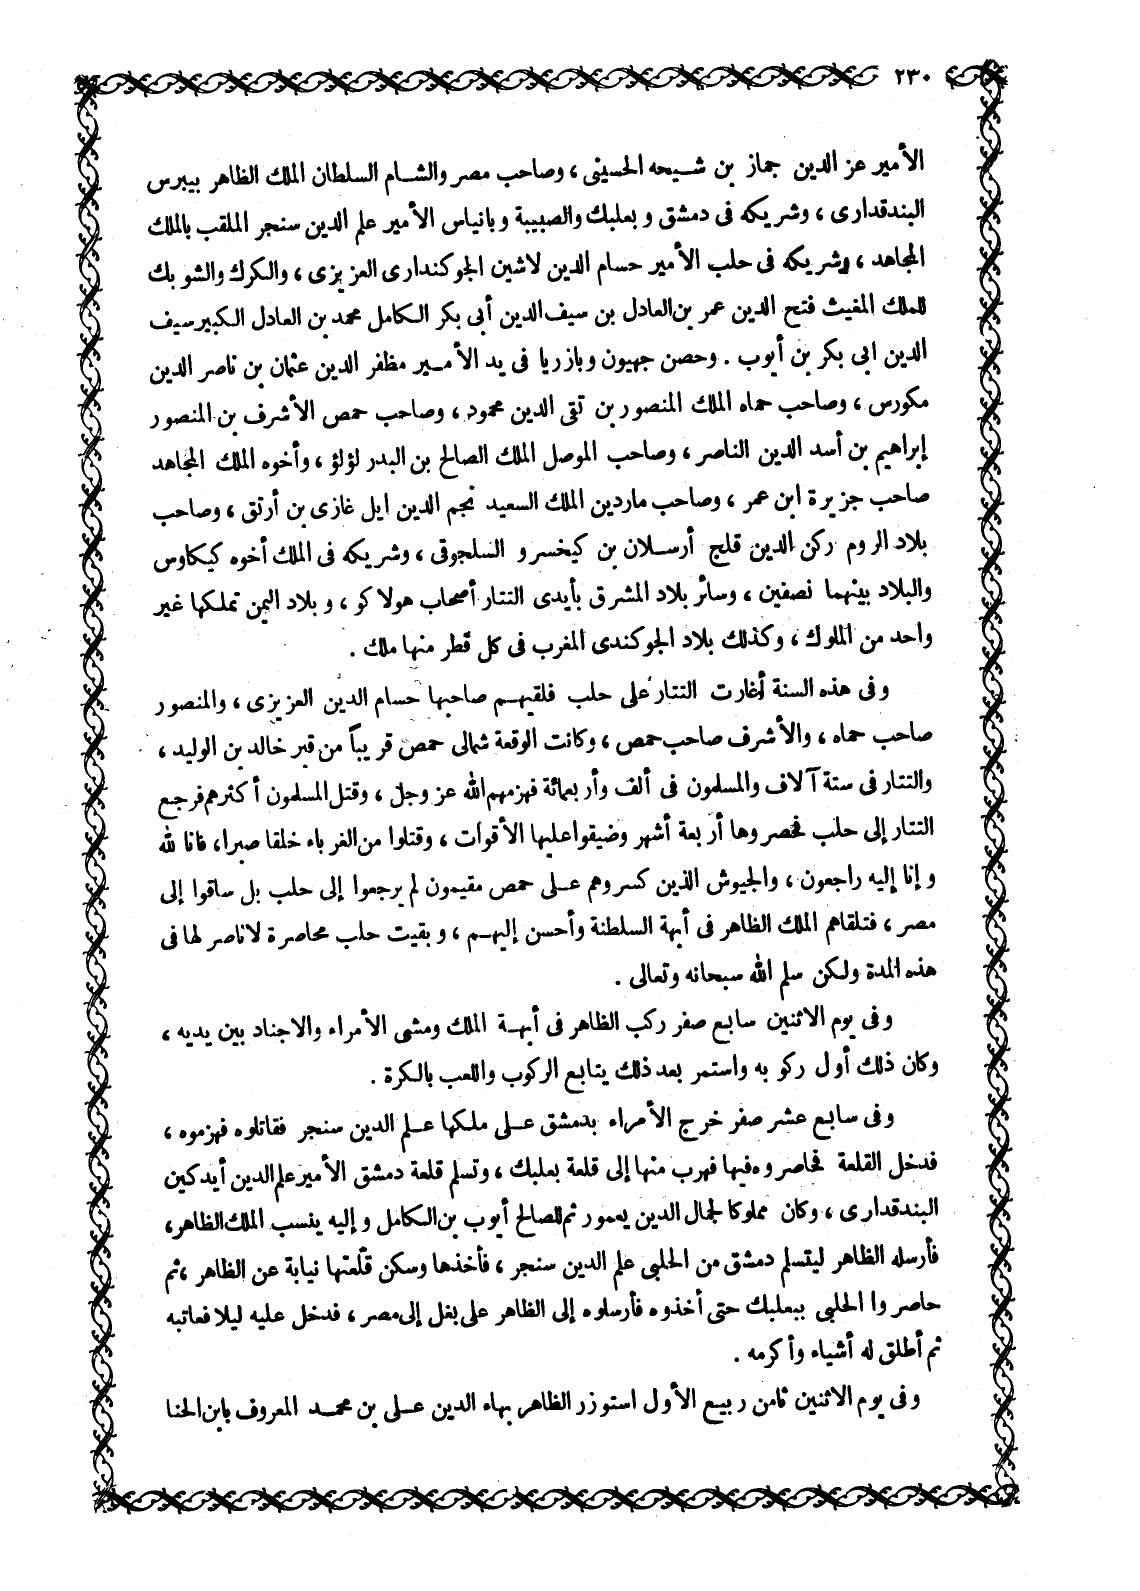 ٢٣٠
الأمير عز الدين جماز بن شيحه الحسينى ، وصاحب مصر والشام السلطان الملك الظاهر بيبرس
البندقدارى ، وشريكه فى دمشق وبعلبك والصبيبة وبانياس الأمير علم الدين سنجر الملقب بالملك
المجاهد ، وشريكه فى حلب الأمير حسام الدين لاشين الجوكندارى العزيزى ، والكرك والشوبك
للملك المغيث فتح الدين عمر بن العادل بن سيف الدين أبى بكر الكامل محمد بن العادل الكبير سيف
الدين ابى بكر بن أيوب . وحصن جهيون وبازريا فى يد الأمير مظفر الدين عثمان بن ناصر الدين
مكورس ، وصاحب حماه الملك المنصور بن تقى الدين محمود ، وصاحب حمص الأشرف بن المنصور
إبراهيم بن أسد الدين الناصر ، وصاحب الموصل الملك الصالح بن البدر لؤلؤ ، وأخوه الملك المجاهد
صاحب جزيرة ابن عمر ، وصاحب ماردين الملك السعيد نجم الدين ايل غازى بن أرتق ، وصاحب
بلاد الروم ركن الدين قلج أرسلان بن كيخسرو السلجوقى ، وشريكه فى الملك أخوه كيكاوس
والبلاد بينهما نصفين ، وسائر بلاد المشرق بأيدى التتار أصحاب هولاكو ، وبلاد اليمن تملكها غير
واحد من الملوك ، وكذلك بلاد الجوكندى المغرب فى كل قطر منها ملك .
وفى هذه السنة أغارت التتار على حلب فلقيهم صاحبها حسام الدين العزيزى ، والمنصور
صاحب حماه ، والأشرف صاحب حمص ، وكانت الوقعة شمالى حمص قريباً من قبر خالد بن الوليد ،
والتتار فى ستة آلاف والمسلمون فى ألف وأربعمائة فهزمهم الله عز وجل ، وقتل المسلمون أكثرهم فرجع
التتار إلى حلب فحصروها أربعة أشهر وضيقوا عليها الأقوات ، وقتلوا من الغرباء خلقا صبرا ، فانا لله
وإنا إليه راجعون ، والجيوش الذين كسروهم على حمص مقيمون لم يرجعوا إلى حلب بل ساقوا إلى
مصر ، فتلقاهم الملك الظاهر فى أبهة السلطنة وأحسن إليهم ، وبقيت حلب محاصرة لا ناصر لها فى
هذه المدة ولكن سلم الله سبحانه وتعالى .
وفى يوم الاثنين سابع صفر ركب الظاهر فى أبهة الملك ومشى الأمراء والاجناد بين يديه ،
وكان ذلك أول ركوبه واستمر بعد ذلك يتابع الركوب واللعب بالكرة .
وفى سابع عشر صفر خرج الأمراء بدمشق على ملكها علم الدين سنجر فقاتلوه فهزموه ،
فدخل القلعة فحاصروه فيها فهرب منها إلى قلعة بعلبك ، وتسلم قلعة دمشق الأمير علم الدين أيدكين
البندقدارى ، وكان مملوكا لجمال الدين يعمور ثم للصالح أيوب بن الكامل وإليه ينسب الملك الظاهر ،
فأرسله الظاهر ليتسلم دمشق من الحلبى علم الدين سنجر ، فأخذها وسكن قلعتها نيابة عن الظاهر ، ثم
حاصروا الحلبى ببعلبك حتى أخذوه فأرسلوه إلى الظاهر على بغل إلى مصر ، فدخل عليه ليلا فعاتبه
ثم أطلق له أشياء وأكرمه .
وفى يوم الاثنين ثامن ربيع الأول استوزر الظاهر بهاء الدين على بن محمد المعروف بابن الحنا